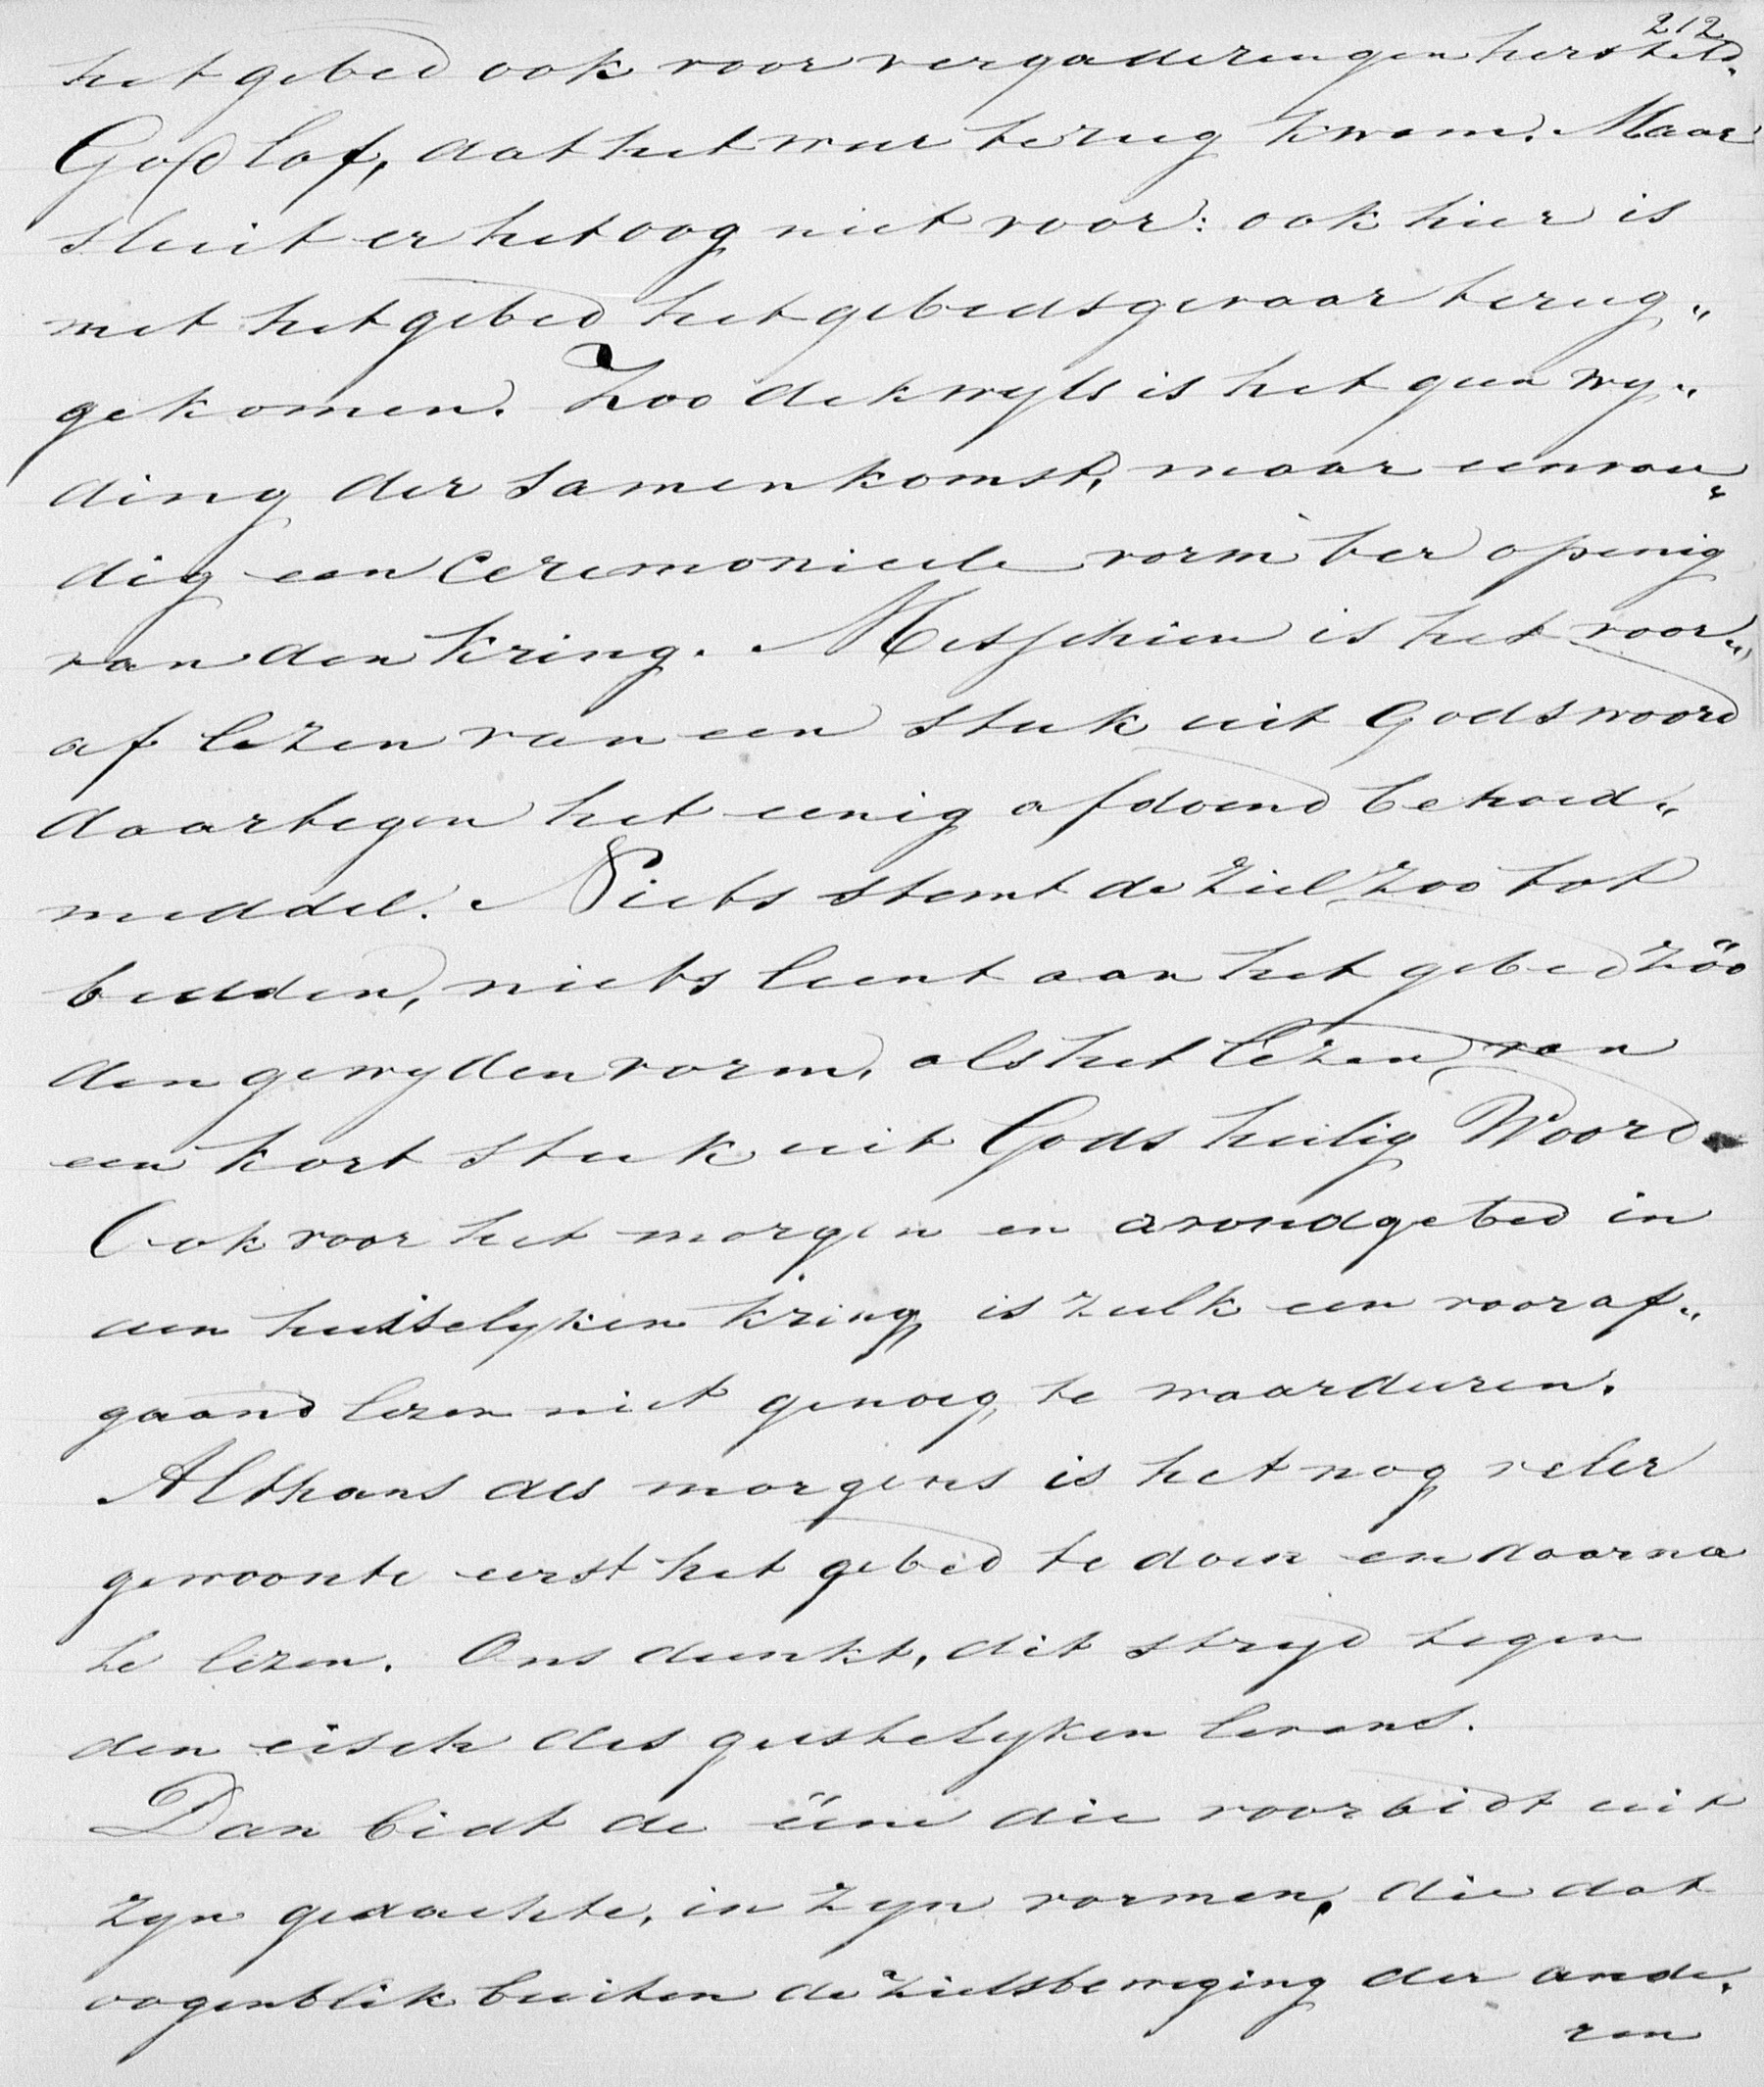 212
het gebed ook voor vergaderingen hersteld.
God lof, dat het weer terug kwam. Maar
sluit er het oog niet voor: ook hier is
met het gebed het gebedsgevaar terug„
gekomen. Zoo dekwyls is het geen wy„
ding der samenkomst, maar eenvou„
dig een Ceremonieele vorm ter openig
van den kring. Misschien is het voor„
af lezen van een stuk uit Gods woord
daartegen het eenig afdoend behoed„
middel. Niets stemt de ziel zoo tot
bidden, niets leent aan het gebed zóó
den gewyden vorm, als het lezen van
een kort stuk uit Gods heilig Woord.
Ook voor het morgen en avondgebed in
den huisselyken kring is zulk een vooraf„
gaand lezen niet genoeg te waardeeren.
Althans des morgens is het nog veler
gewoonte eerst het gebed te doen en daarna
te lezen. Ons dunkt, dit stryd tegen
den eisch des geestelyken levens.
Dan bidt de ééne die voorbidt uit
zyn gedachte, in zyn vormen, die dat
oogenblik buiten de zielsbeweging der ande„
ren